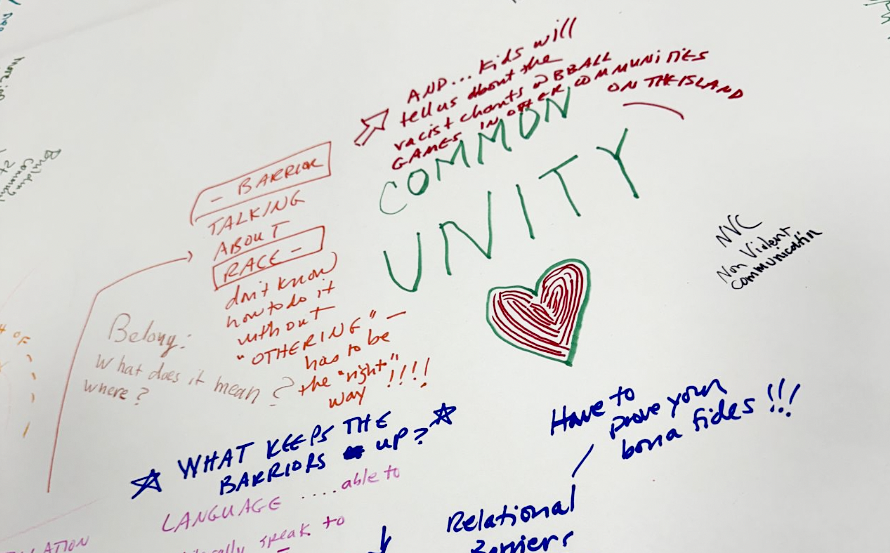 AND... Kids will
tell us about the
racist chants @ BBALL
GAMES IN OTHER COMMUNITIES
ON THE ISLAND
COMMON
UNITY
- BARRIOR
TALKING
ABOUT
RACE -
don't know
how to do it
without
"OTHERING" -
has to be
the "right"
way !!!!
Belong:
What does it mean?
where?
NVC
Non Violent
Communication
WHAT KEEPS THE
BARRIORS UP?
LANGUAGE .... able to
speak to
Have to
prove your
bona fides !!!
Relational
Barriers